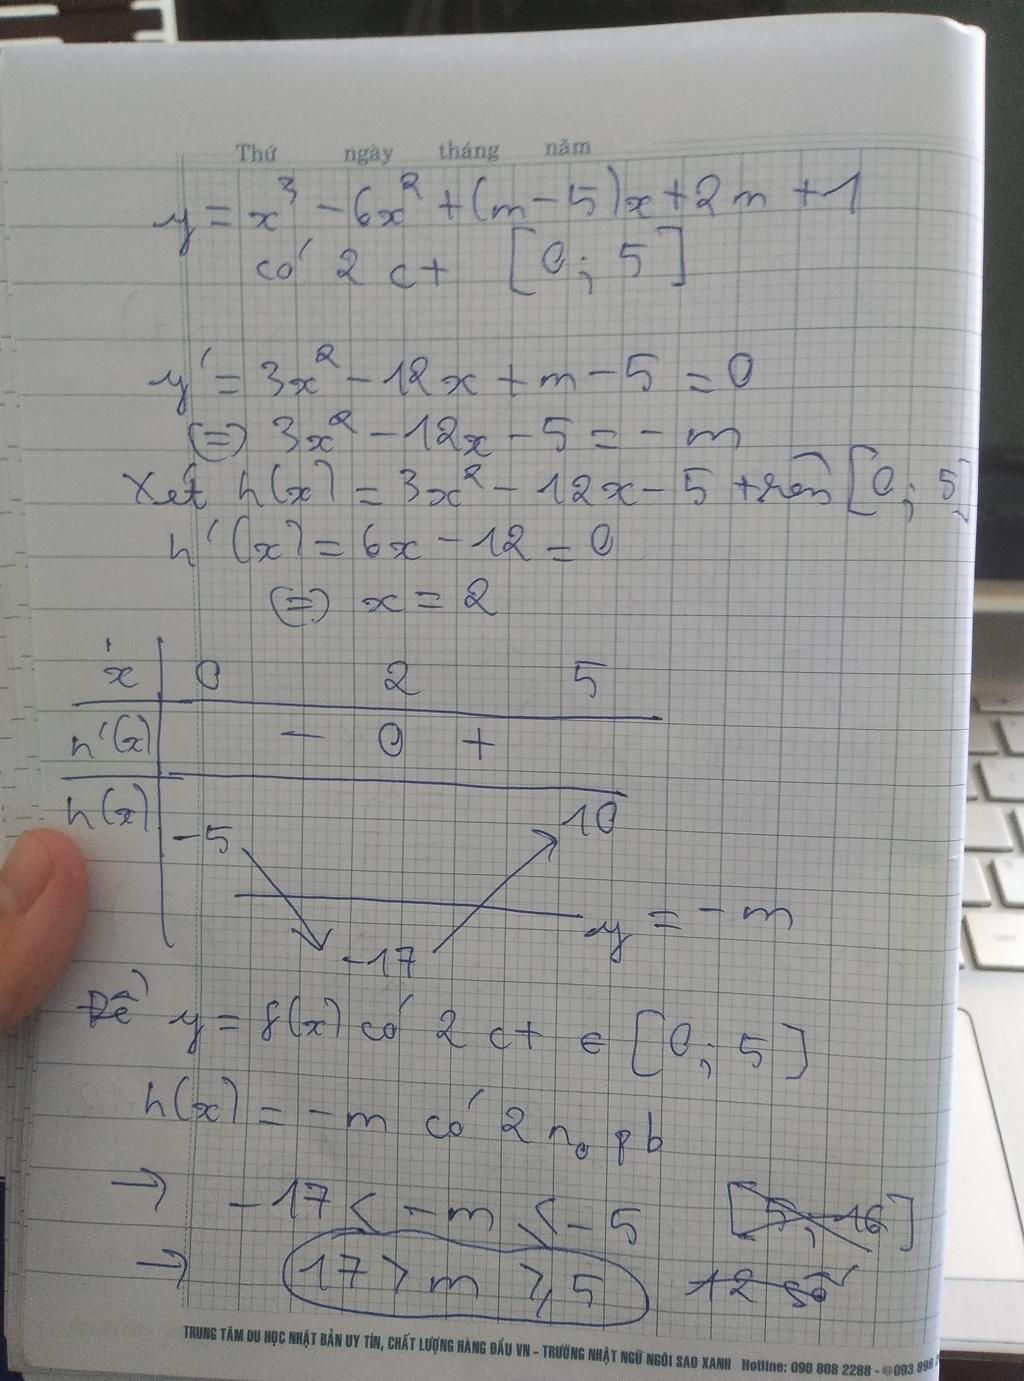 Thứ ngày tháng năm
y = x³ - 6x² + (m - 5)x + 2m + 1
có 2 ct [0; 5]
y' = 3x² - 12x + m - 5 = 0
(=) 3x² - 12x - 5 = - m
Xét h(x) = 3x² - 12x - 5 trên [0; 5]
h'(x) = 6x - 12 = 0
(=) x = 2
x 0 2 5
h'(x) - 0 +
h(x) -5 -17 10
y = - m
Để y = f(x) có 2 ct ∈ [0; 5]
h(x) = - m có 2 n₀ pb
→ -17 < -m ≤ -5 [5; 16]
→ 17 > m ≥ 5 12 số
TRUNG TÂM DU HỌC NHẬT BẢN UY TÍN, CHẤT LƯỢNG HÀNG ĐẦU VN - TRƯỜNG NHẬT NGỮ NGÔI SAO XANH Hotline: 090 808 2288 - 093 898